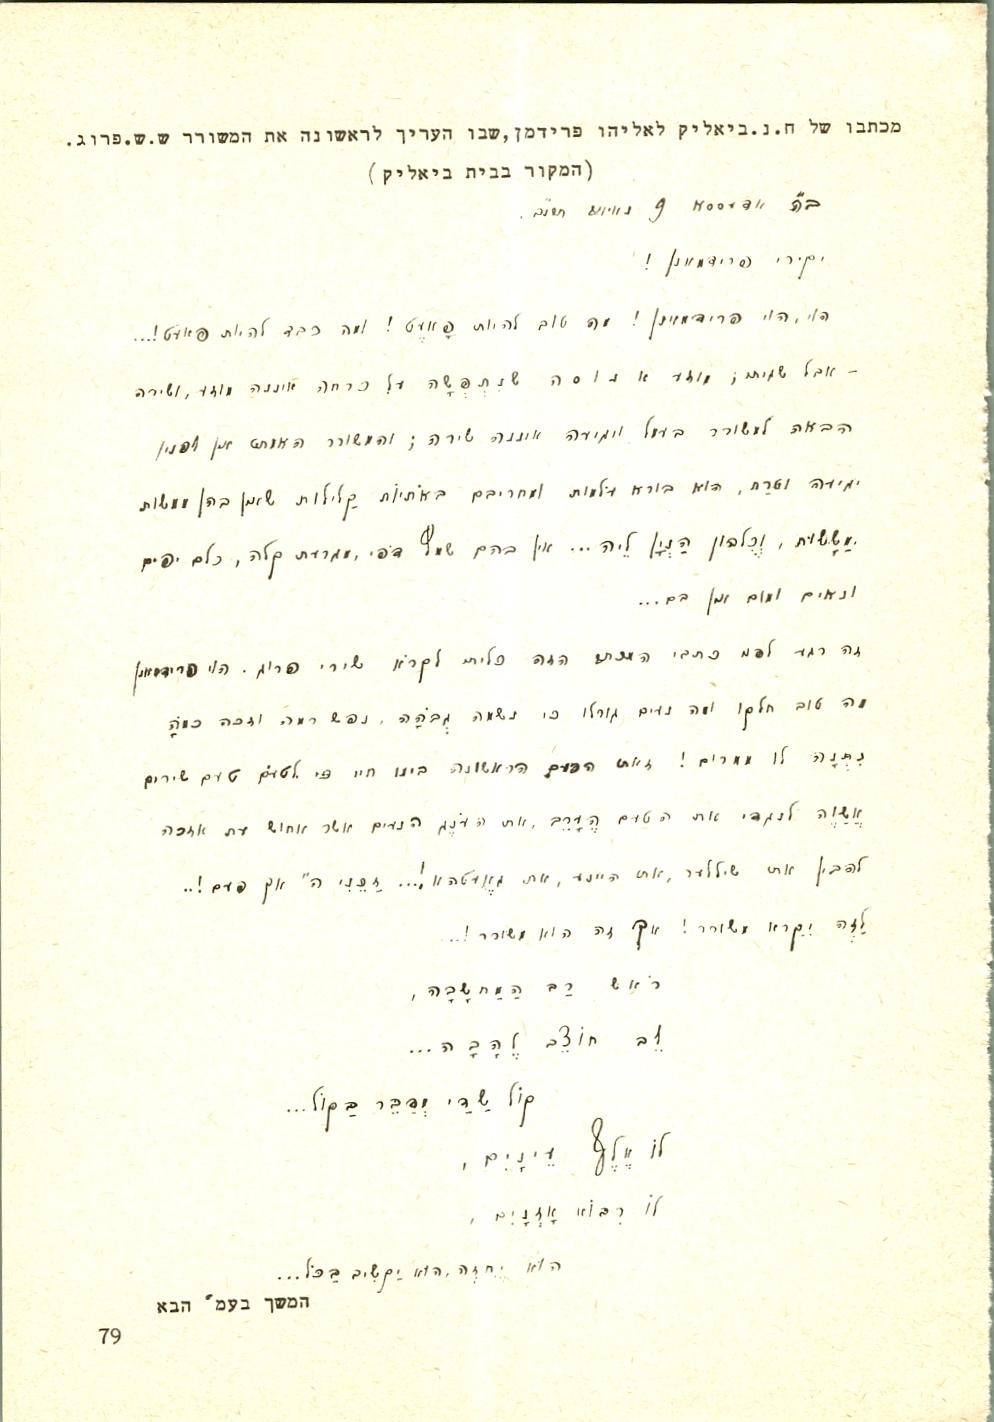 מכתבו של ח.נ.ביאליק לאליהו פרידמן,שבו העריך לראשונה את המשורר ש.ש.פרוג.
(המקור בבית ביאליק)
ב"ה אדעססא 9
יקירי פרידמאן !
הוי, הוי פרידמאן ! מה טוב להיות פָּאֶט ! ומה כבד להיות פאעט!...
– אבל שגיתי; מודע א נ ו ס ה שנִתְפְּשָׂה על כרחה איננה מודע, ושירה
הבאה למשורר בעמל ויגיעה איננה שירה; והמשורר האמתי אין לפניו
יגיעה וטרַח, הוא בורא עולמות ומחריבם בְּאֹתִיּוֹת קַלִּילוֹת שאין בהן ממשות
מַמָּשׁוּת, וְכֻלְּהוֹן הַנְיָן לֵיהּ... אין בהם שמץ דֹפי, מגרעת קלה, כלם יפים
ונאים ומום אין בם...
זה רגע לפני כתבי המכתב הזה כליתי לקרֹא שירי פרוג. הוי פרידמאן
מה טוב חלקו ומה נעים גורלו כי נשמה גְבֹהָה, נפש רמה וזכה כמֹהָ
נִתְּנָה לו ממרום! זאת הפעם הראשונה בימי חיי כי לטעֹם טעם שירים
אֲשַׁוֶּה לנגדי את הטעם הֶעָרֵב, את העֹנֶג הנעים אשר אחוש עת אזכה
להבין את שיללער, את היינע, את גאֶטהא!... זַכֵּנִי ה' אך פעם!..
לָזֶה יִקָּרא משורר! אך זה הוא משורר!..
רֹאשׁ רַב הַמַּחֲשָׁבָה,
לֵב חוֹצֵב לֶהָבָה...
קוֹל שַׁדַּי מְדַבֵּר בַּקוֹל...
לוֹ אֶלֶף עֵינָיִם,
לוֹ רִבּוֹא אָזְנָיִם,
הוּא יֶחֱזֶה, הוּא יַקְשִׁיב בַּכֹּל...
המשך בעמ' הבא
79